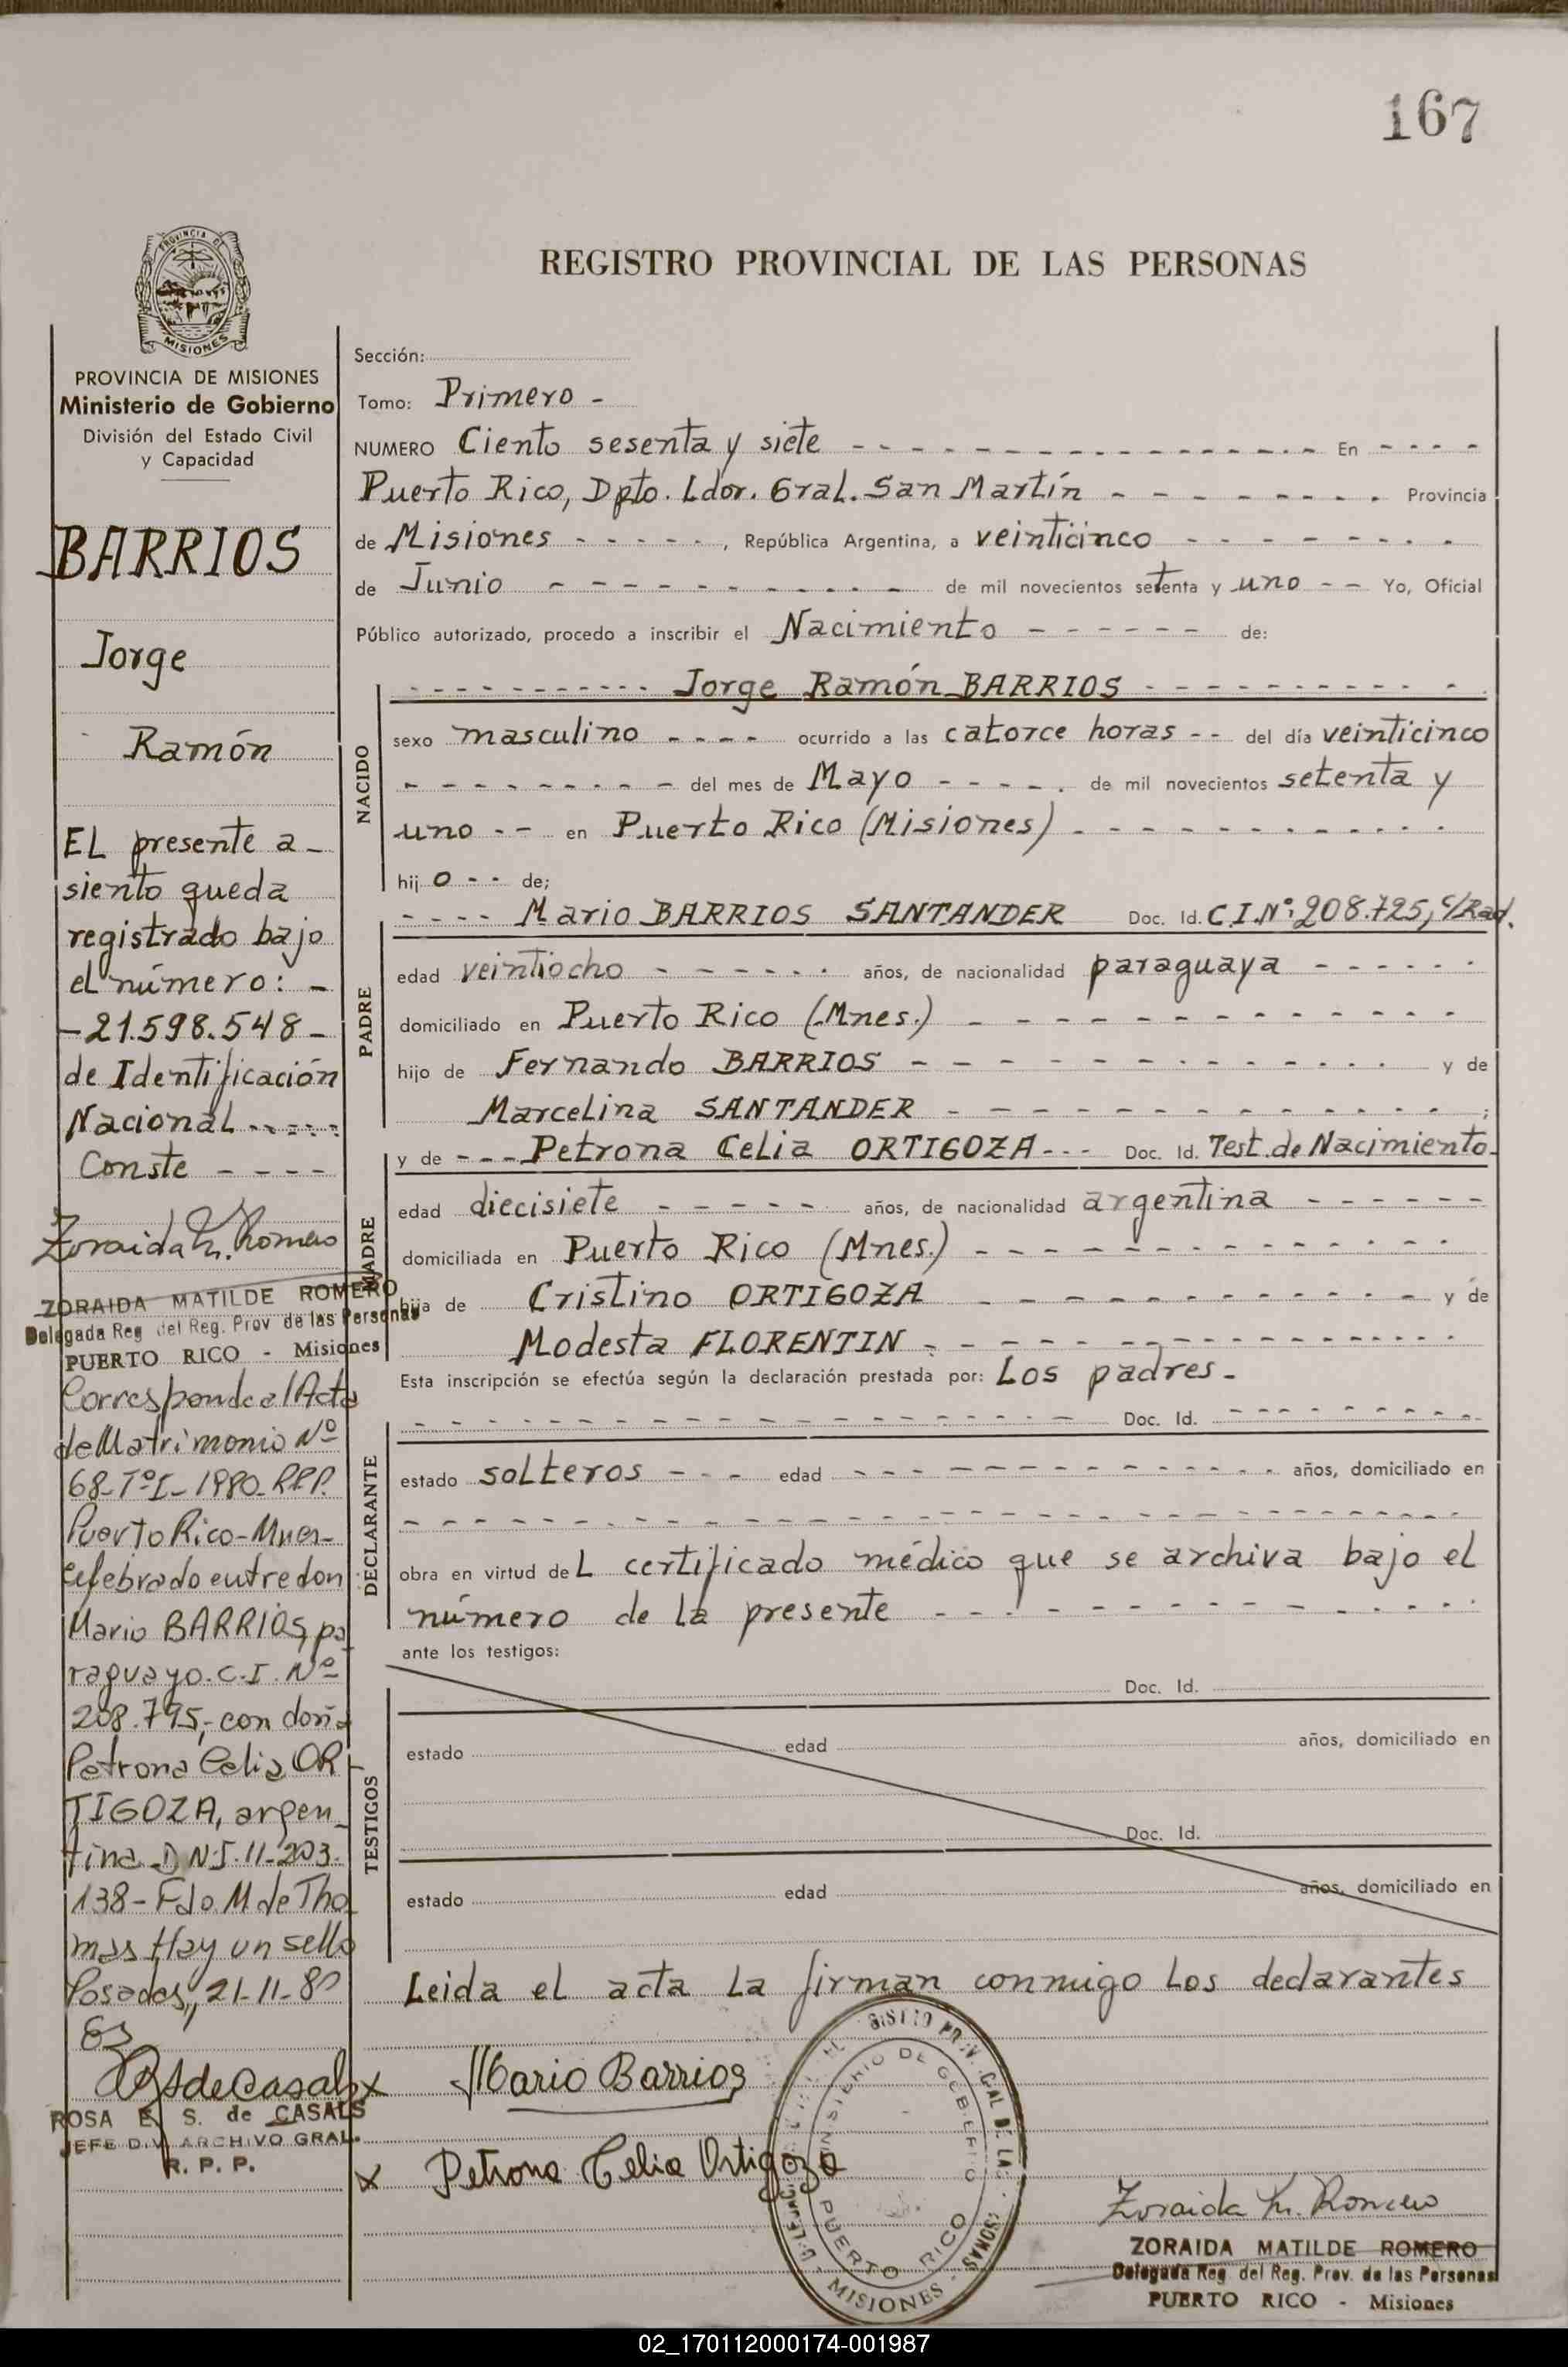 167
REGISTRO PROVINCIAL DE LAS PERSONAS
PROVINCIA DE
MISIONES
PROVINCIA DE MISIONES
Ministerio de Gobierno
División del Estado Civil
y Capacidad
BARRIOS
Jorge
Ramón
EL presente a-
siento queda
registrado bajo
el número: -
-21.598.548-
de Identificación
Nacional
Conste - - - -
Zoraida M. Romero
ZORAIDA MATILDE ROMERO
Delegada Reg del Reg. Prov de las Personas
PUERTO RICO - Misiones
Corresponde al Acta
de Matrimonio Nº
68-TºI-1980-R.P.P.
Puerto Rico-Mnes-
celebrado entre don
Mario BARRIOS, pa
raguayo. C.I. Nº
208.795,- con doña
Petrona Celia OR
TIGOZA, argen_
tina D.N.I. 11-203.
138- Fdo. M de Tho
mas Hay un sello
Posadas, 21-11-80
ROSA E. S. de CASALS
JEFE DIV ARCHIVO GRAL.
R. P. P.
Sección:
Tomo: Primero -
NUMERO Ciento sesenta y siete - - - En - - - -
Puerto Rico, Dpto. Ldor. Gral. San Martín - - - Provincia
de Misiones - - - - -, República Argentina, a veinticinco - - -
de Junio - - - de mil novecientos setenta y uno - - Yo, Oficial
Público autorizado, procedo a inscribir el Nacimiento - - - de:
NACIDO
- - - Jorge Ramón BARRIOS - - -
sexo masculino - - - - ocurrido a las catorce horas - - del día veinticinco
- - - del mes de Mayo - - - de mil novecientos setenta y
uno - - en Puerto Rico (Misiones) - - -
hijo - - de;
PADRE
- - - - Mario BARRIOS SANTANDER Doc. Id. C.I.Nº:208.725, c/Rad.
edad veintiocho - - - años, de nacionalidad paraguaya - - -
domiciliado en Puerto Rico (Mnes.) - - -
hijo de Fernando BARRIOS - - - y de
Marcelina SANTANDER - - - ;
MADRE
y de - - - Petrona Celia ORTIGOZA - - - Doc. Id. Test. de Nacimiento-
edad diecisiete - - - años, de nacionalidad argentina - - -
domiciliada en Puerto Rico (Mnes.) - - -
hija de Cristino ORTIGOZA - - - y de
Modesta FLORENTIN - - -
Esta inscripción se efectúa según la declaración prestada por: Los padres.-
DECLARANTE
- - - Doc. Id. - - -
estado solteros - - - edad - - - años, domiciliado en
- - -
obra en virtud del certificado médico que se archiva bajo el
número de la presente - - -
ante los testigos:
TESTIGOS
Doc. Id.
estado edad años, domiciliado en
Doc. Id.
estado edad años, domiciliado en
Leida el acta la firman conmigo los declarantes
x Mario Barrios
x Petrona Celia Ortigoza
MINISTERIO DE GOBIERNO
PUERTO RICO
MISIONES
Zoraida M. Romero
ZORAIDA MATILDE ROMERO
Delegada Reg. del Reg. Prov. de las Personas
PUERTO RICO - Misiones
02_170112000174-001987